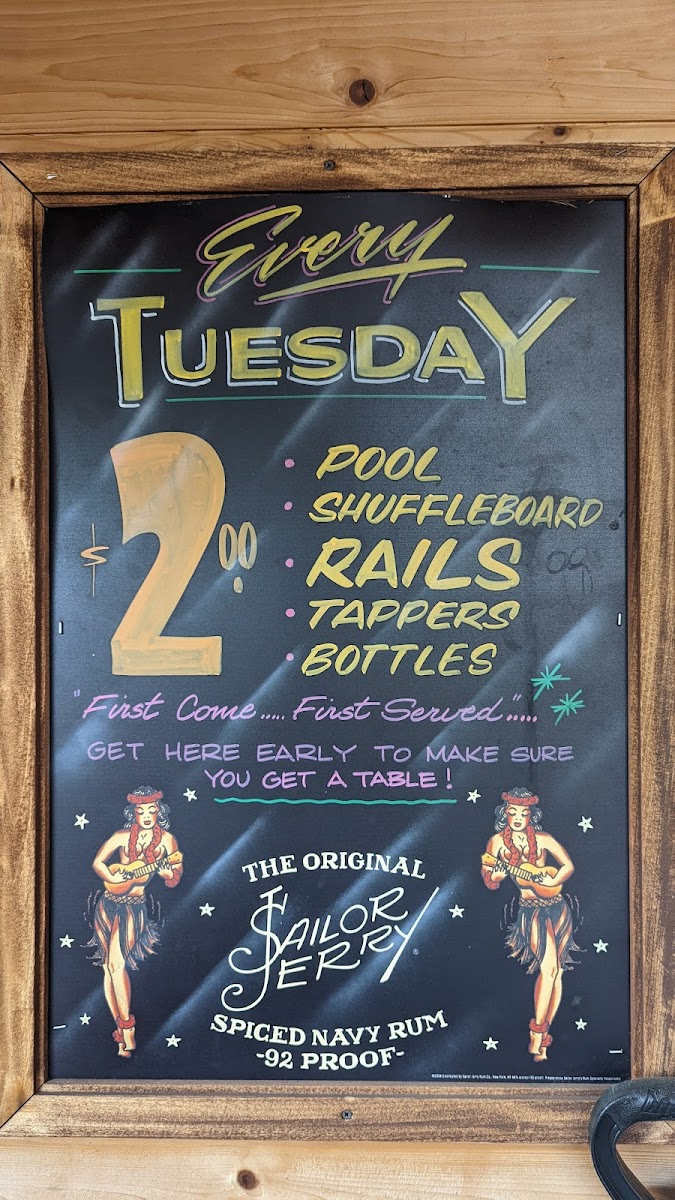 Every
TUESDAY
$2.00
• POOL
• SHUFFLEBOARD
• RAILS
• TAPPERS
• BOTTLES
"First Come..... First Served".....
GET HERE EARLY TO MAKE SURE
YOU GET A TABLE!
THE ORIGINAL
SAILOR
JERRY
SPICED NAVY RUM
-92 PROOF-